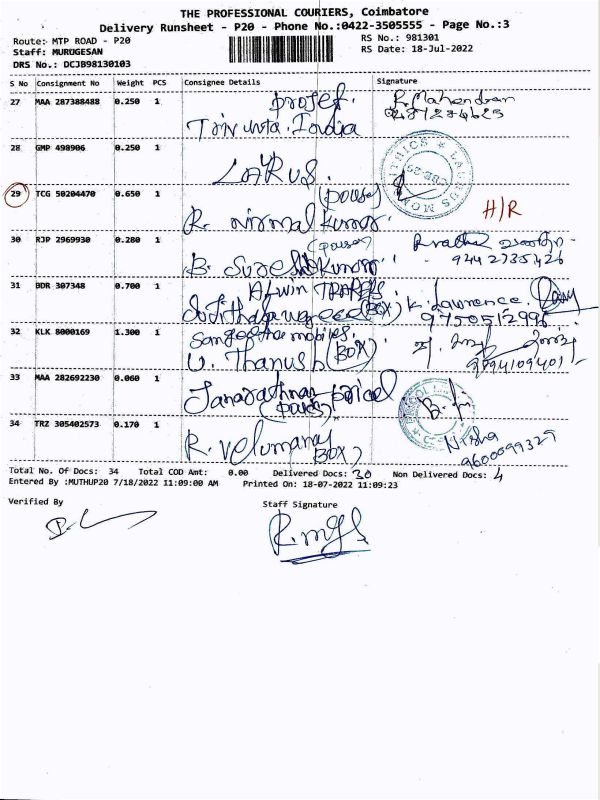 THE PROFESSIONAL COURIERS, Coimbatore
Delivery Runsheet - P20 - Phone No.:0422-3505555 - Page No.:3
Route: MTP ROAD - P20
RS No.: 981301
Staff: MURUGESAN
RS Date: 18-Jul-2022
DRS No.: DCJB98130103
S No Consignment No Weight PCS Consignee Details Signature
27 MAA 287388488 0.250 1 Profef. R. Mahendran
India
28 GMP 498906 0.250 1 LARUS.
29 TCG 50204470 0.650 1 (pouse)
R. nirmal kumar H/R
30 RJP 2969930 0.280 1 (pouse)
B. Suresh kumar 9442735426
31 BDR 307348 0.700 1 ALWIN TRADERS
(BOX) K. Lawrence.
9750512996
32 KLK 8000169 1.300 1 Sangeetha mobiles.
U. Thanush (BOX) 9894109401
33 MAA 282692230 0.060 1 Janarathnan
34 TRZ 305402573 0.170 1 R. Velumany Nisha
(BOX) 9600099329
Total No. Of Docs: 34 Total COD Amt: 0.00 Delivered Docs: 30 Non Delivered Docs: 4
Entered By :MUTHUP20 7/18/2022 11:09:00 AM Printed On: 18-07-2022 11:09:23
Verified By
Staff Signature